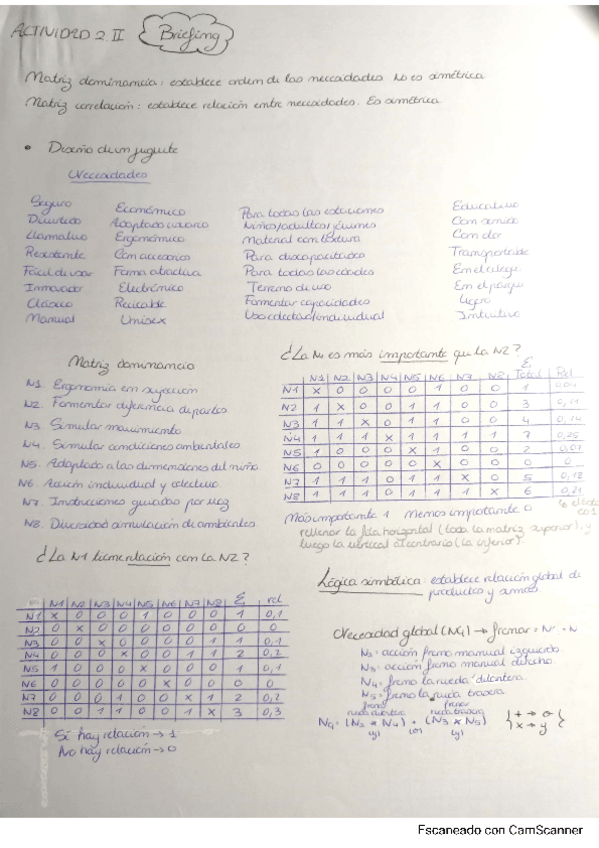 ACTIVIDAD 2.II Briefing
Matriz dominancia: establece orden de las necesidades No es simétrica
Matriz correlación: establece relación entre necesidades. Es simétrica
• Diseño de un juguete
Necesidades
Seguro
Divertido
Llamativo
Resistente
Fácil de usar
Innovador
Clásico
Manual
Económico
Adaptado usuario
Ergonómico
Con accesorios
Forma atractiva
Electrónico
Reciclable
Unisex
Para todas las estaciones
Niños/adultos/jóvenes
Material con textura
Para discapacitados
Para todas las edades
Terreno de uso
Fomentar capacidades
Uso colectivo/individual
Educativo
Con sonido
Con olor
Transportable
En el colegio
En el parque
Ligero
Intuitivo
Matriz dominancia
N1. Ergonomía en sujeción
N2. Fomentar diferencia de partes
N3 Simular movimiento
N4. Simular condiciones ambientales
N5. Adaptado a las dimensiones del niño
N6. Acción individual y colectiva
N7. Instrucciones guiadas por voz
N8. Diversidad simulación de ambientes
¿La N1 es más importante que la N2?
N1 N2 N3 N4 N5 N6 N7 N8 Σ Total Rel
N1 X 0 0 0 0 1 0 0 1 0,04
N2 1 X 0 0 1 1 0 0 3 0,11
N3 1 1 X 0 1 1 0 0 4 0,14
N4 1 1 1 X 1 1 1 1 7 0,25
N5 1 0 0 0 X 1 0 0 2 0,07
N6 0 0 0 0 0 X 0 0 0 0
N7 1 1 1 0 1 1 X 0 5 0,18
N8 1 1 1 0 1 1 1 X 6 0,21
Más importante 1 Menos importante 0
rellenar la fila horizontal (toda la matriz superior), y
luego la vertical al contrario (la inferior)
¿La N1 tiene relación con la N2?
N1 N2 N3 N4 N5 N6 N7 N8 Σ rel
N1 X 0 0 0 1 0 0 0 1 0,1
N2 0 X 0 0 0 0 0 0 0 0
N3 0 0 X 0 0 0 0 1 1 0,1
N4 0 0 0 X 0 0 1 1 2 0,2
N5 1 0 0 0 X 0 0 0 1 0,1
N6 0 0 0 0 0 X 0 0 0 0
N7 0 0 0 1 0 0 X 1 2 0,2
N8 0 0 1 1 0 0 1 X 3 0,3
Si hay relación → 1
No hay relación → 0
Lógica simbólica: establece relación global de
productos y sumas
Necesidad global (NG) → frenar =
N2 = acción freno manual izquierdo
N3 = acción freno manual derecho.
N4 = freno la rueda delantera.
N5 = freno la rueda trasera
freno rueda delantera freno rueda trasera
NG = (N2 x N4) + (N3 x N5) { + → o
(y) (o) (y) x → y }
Escaneado con CamScanner